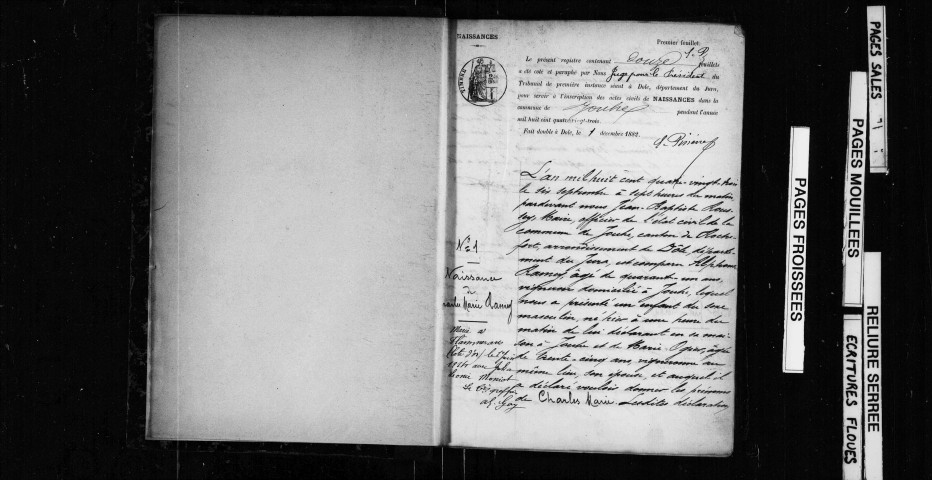 NAISSANCES
Premier feuillet.
Le présent registre contenant douze feuillets
a été coté et paraphé par Nous Juge pour le Président du
Tribunal de première instance séant à Dole, département du Jura,
pour servir à l'inscription des actes civils de NAISSANCES dans la
commune de Jouhe pendant l'année
mil huit cent quatre-vingt-trois.
Fait double à Dole, le 1 décembre 1882.
L'an mil huit cent quatre-vingt-trois
le dix septembre à sept heures du matin,
pardevant nous Jean-Baptiste
Maire, officier de l'état civil de la
commune de Jouhe, canton de Roche-
fort, arrondissement de Dôle, départe-
ment du Jura, est comparu Alphonse
Ramoy âgé de quarante-un ans,
vigneron domicilié à Jouhe, lequel
nous a présenté un enfant du sexe
masculin, né hier à une heure du
matin de lui déclarant en sa mai-
son à Jouhe et de Marie âgée
de trente-cinq ans, vigneronne au
même lieu, son épouse, et auquel il
a déclaré vouloir donner les prénoms
de Charles Marie. Lesdites déclaration
No 1
Naissance
de
Charles Marie Ramoy
Marié à
le
avec
Le Greffier
PAGES SALES
PAGES MOUILLEES
PAGES FROISSEES
RELIURE SERREE
ECRITURES FLOUES